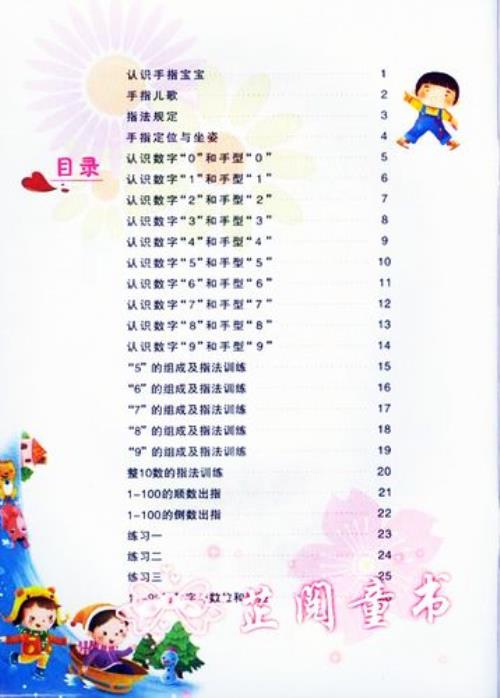 目录
认识手指宝宝 1
手指儿歌 2
指法规定 3
手指定位与坐姿 4
认识数字“0”和手型“0” 5
认识数字“1”和手型“1” 6
认识数字“2”和手型“2” 7
认识数字“3”和手型“3” 8
认识数字“4”和手型“4” 9
认识数字“5”和手型“5” 10
认识数字“6”和手型“6” 11
认识数字“7”和手型“7” 12
认识数字“8”和手型“8” 13
认识数字“9”和手型“9” 14
“5”的组成及指法训练 15
“6”的组成及指法训练 16
“7”的组成及指法训练 17
“8”的组成及指法训练 18
“9”的组成及指法训练 19
整10数的指法训练 20
1-100的顺数出指 21
1-100的倒数出指 22
练习一 23
练习二 24
练习三 25
芷阅童书